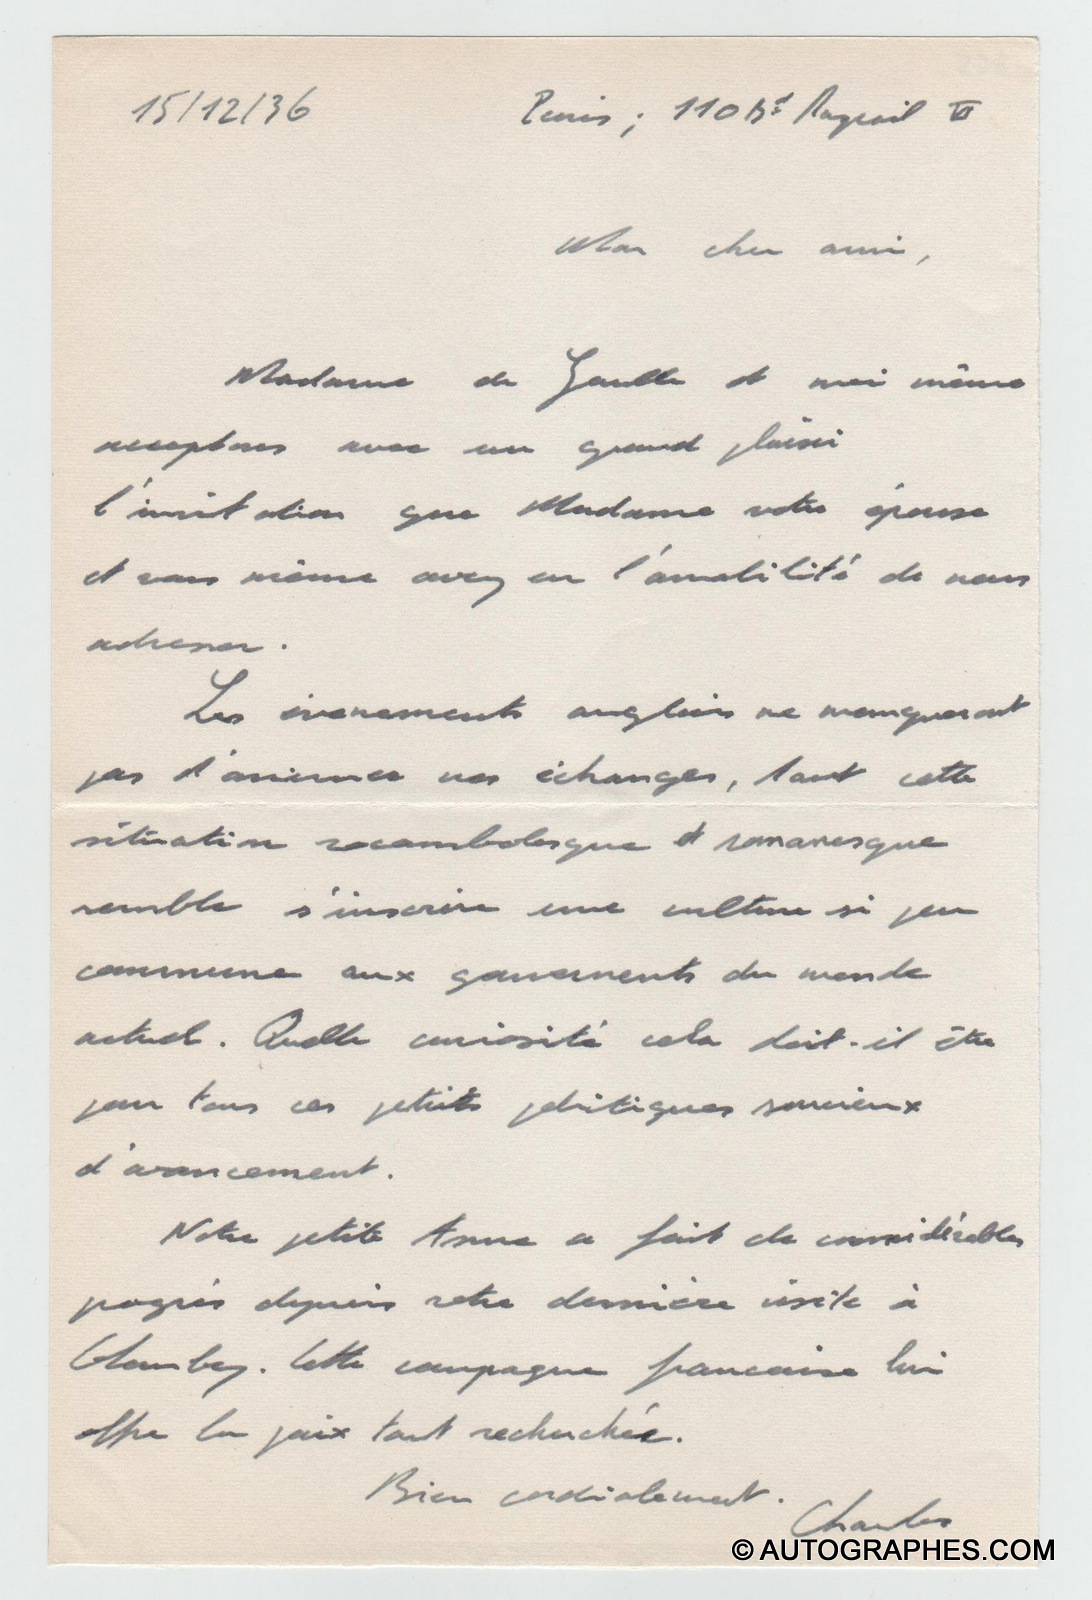 15/12/36 Paris ; 110 Bd Raspail VI
Mon cher ami,
Madame de Gaulle et moi même
acceptons avec un grand plaisir
l'invitation que Madame votre épouse
et vous même avez eu l'amabilité de nous
adresser.
Les évenements anglais ne manqueront
pas d'animer nos échanges, tant cette
situation rocambolesque et romanesque
semble s'inscrire une culture si peu
commune aux gouvernents du monde
actuel. Quelle curiosité cela doit-il être
pour tous ces petits politiques soucieux
d'avancement.
Notre petite Anne a fait de considérables
progrès depuis votre dernière visite à
Colombey. Cette campagne francaise lui
offre la paix tant recherchée.
Bien cordialement.
Charles
© AUTOGRAPHES.COM